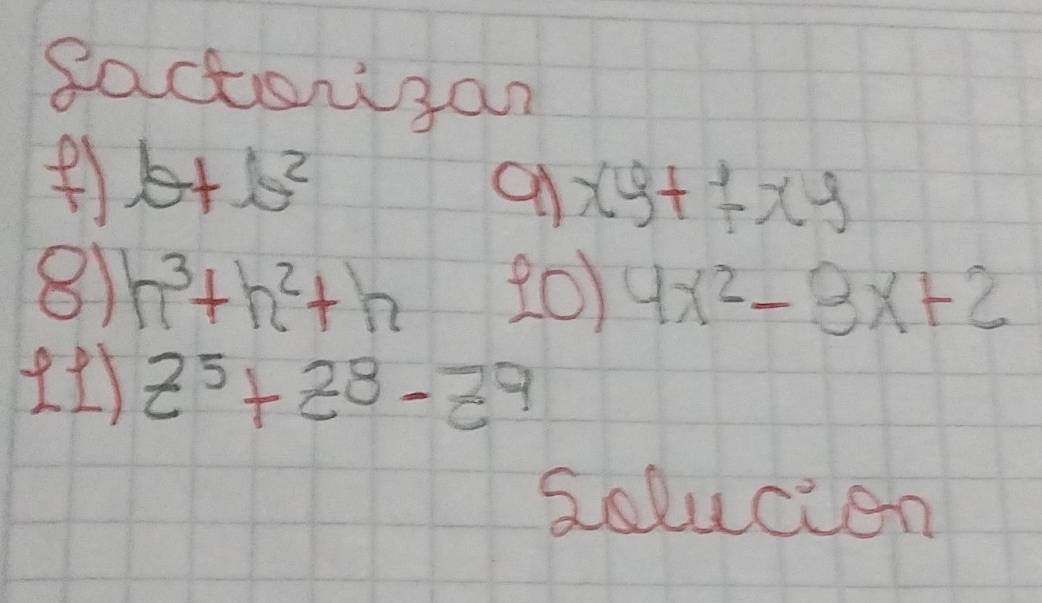 Factorizar
7) b+b² 9) xy+7xy
8) h³+h²+h 10) 4x²-8x+2
11) z⁵+z⁸-z⁹
Solucion